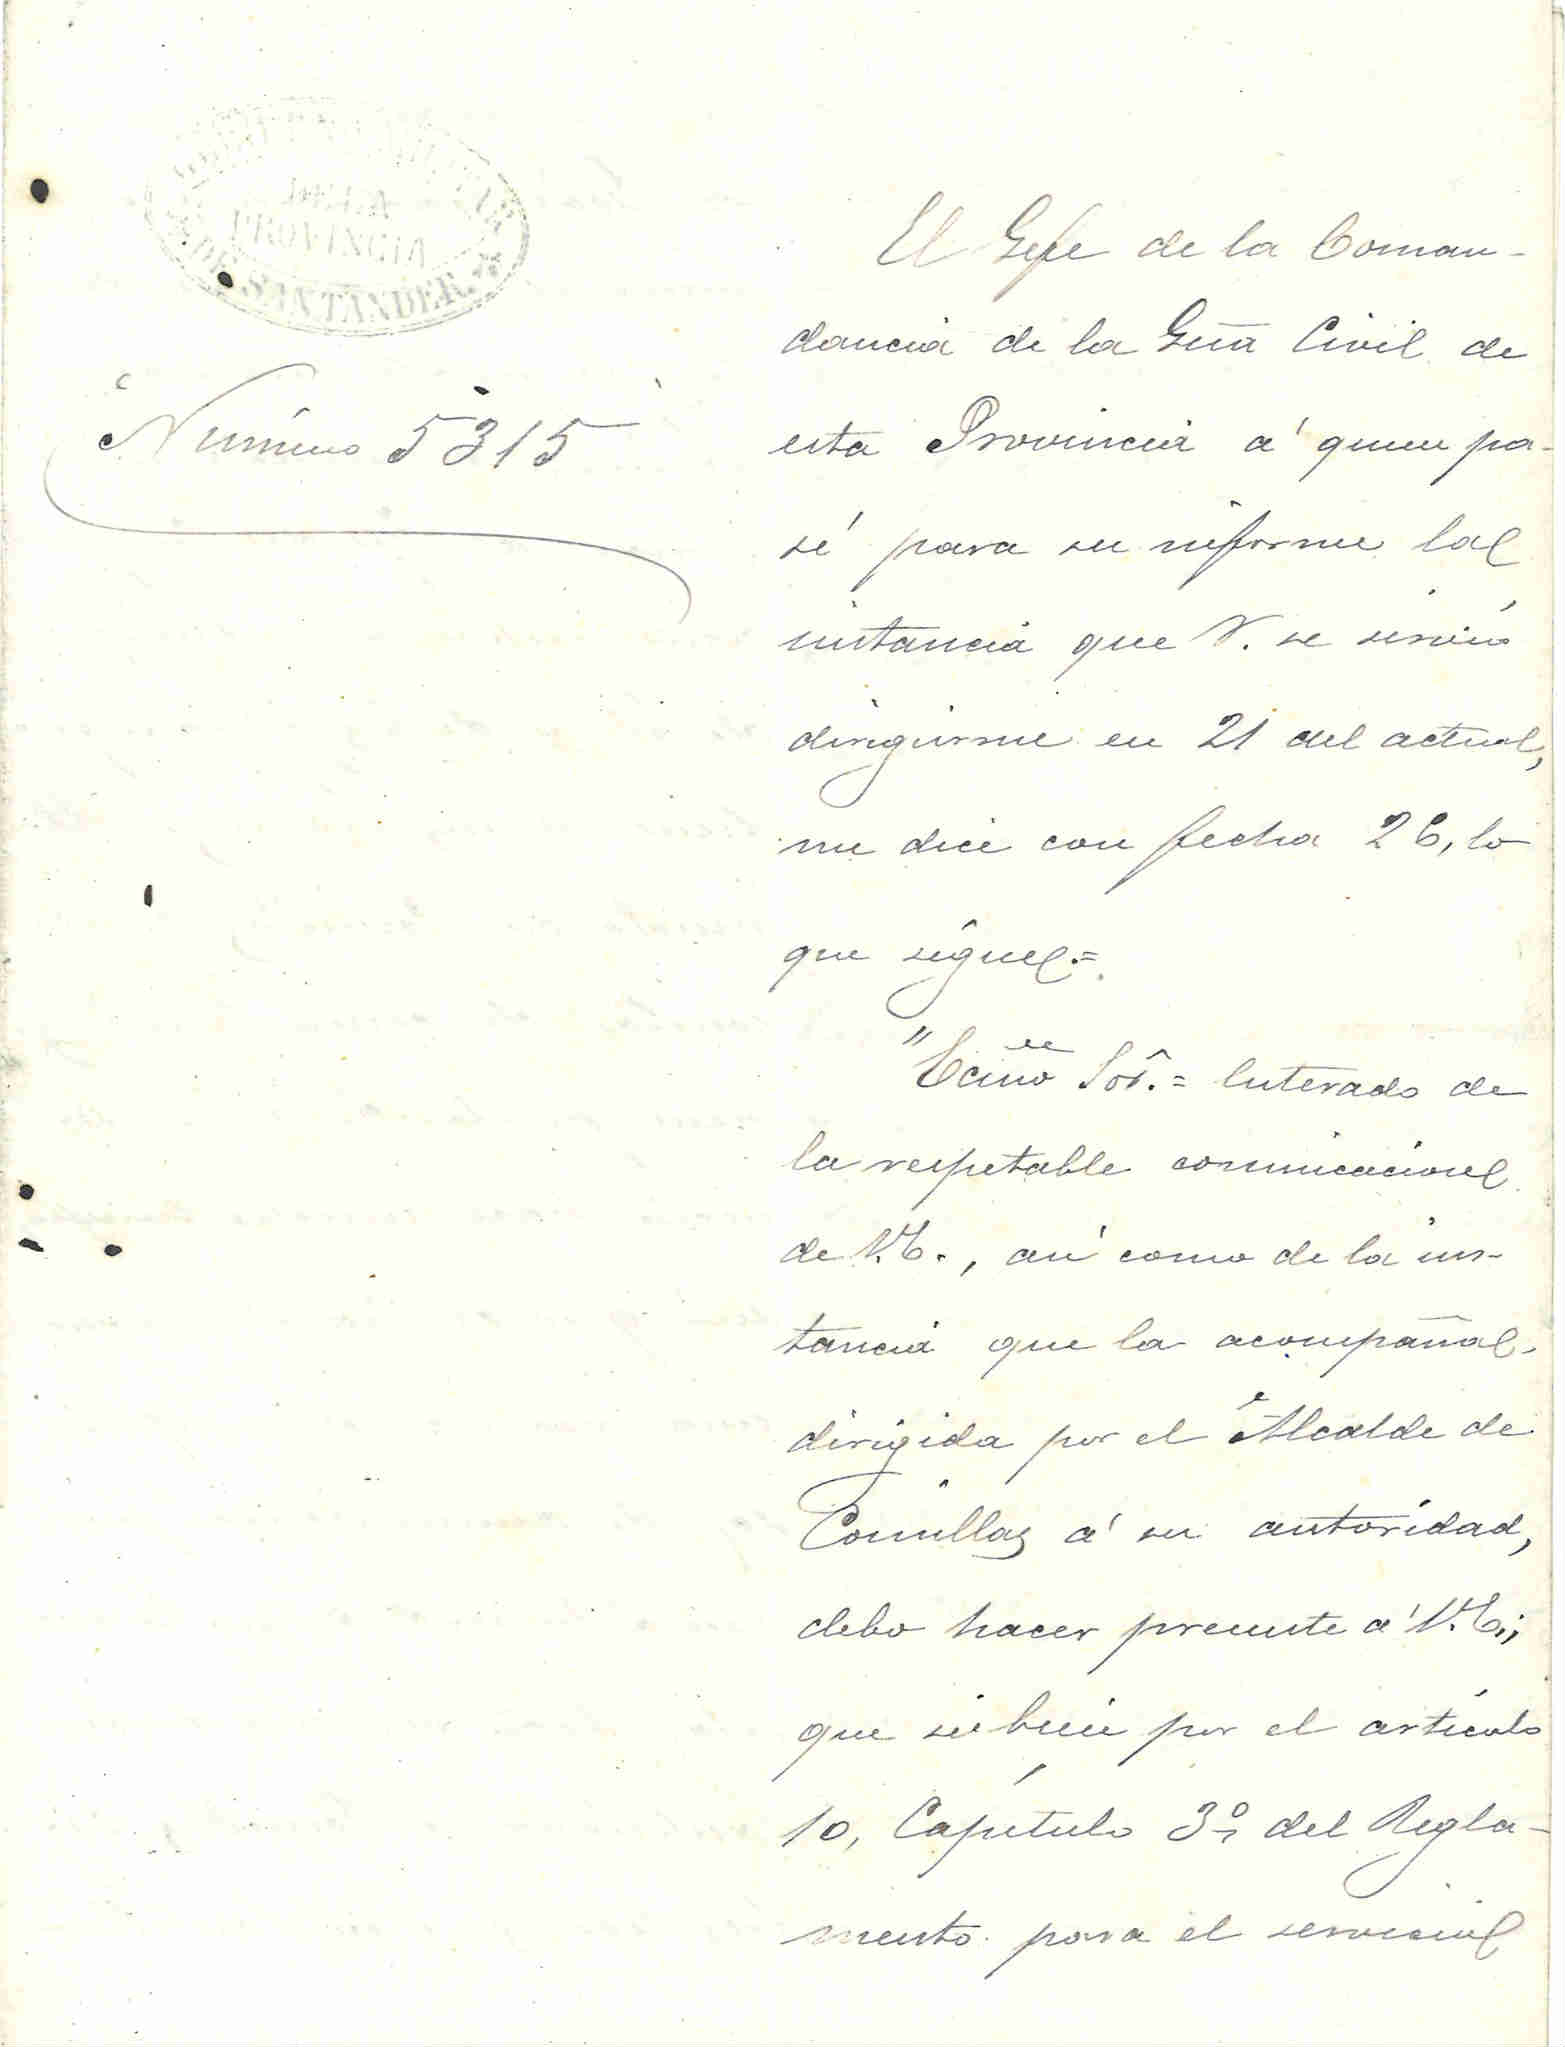 GOBIERNO MILITAR
DE LA
PROVINCIA
DE SANTANDER.
Número 5315
El Gefe de la Coman-
dancia de la Gũa Civil de
esta Provincia á quien pa-
sé para su informe la
instancia que V. se sirvió
dirigirme en 21 del actual,
me dice con fecha 26, lo
que sigue.=
"Ecmo Sor.= Enterado de
la respetable comunicacion
de V.E., asi como de la ins-
tancia que la acompaña
dirigida por el Alcalde de
Comillas á su autoridad,
debo hacer presente á V.E.;
que si bien por el artículo
10, Capítulo 3º del Regla-
mento para el servicio